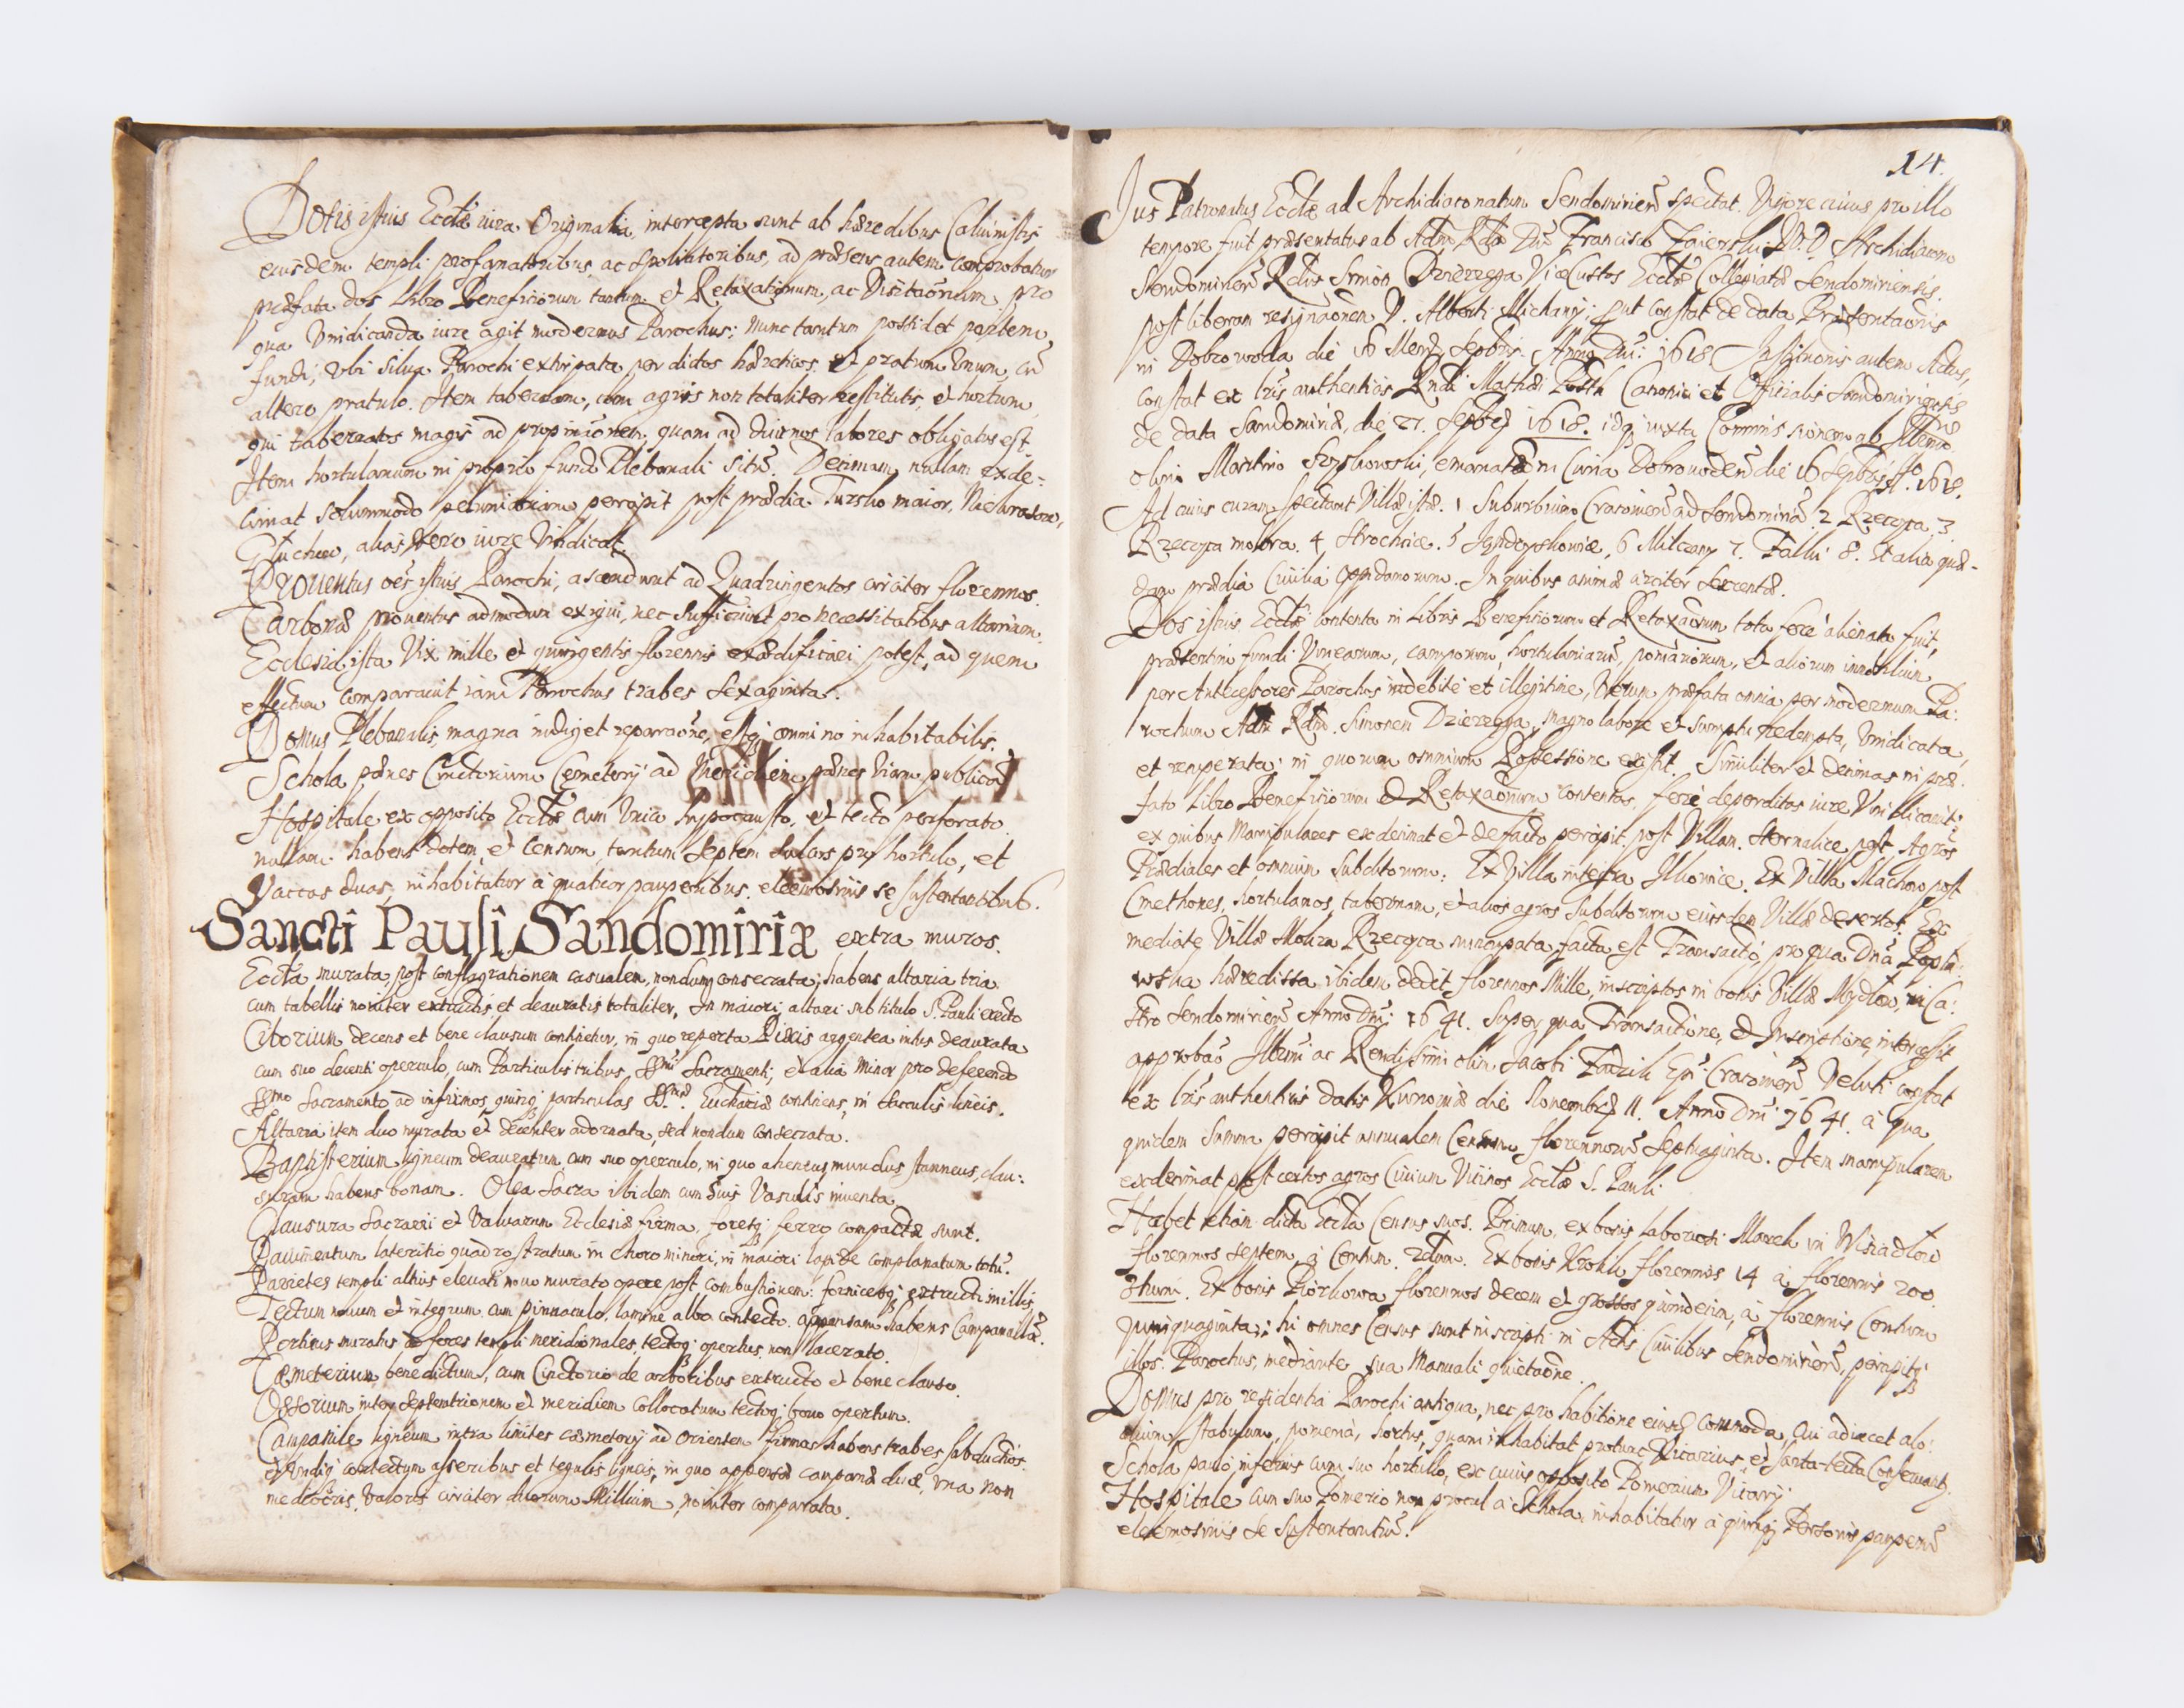 Dotis istius Ecclæ iura Originalia, intercepta sunt ab hæredibus Caluinistis
eiusdem templi profanatoribus, ac spoliatoribus, ad præsens autem comprobatur
præfata dos Libro Beneficiorum tantum et Retaxationum, ac Visitaonum, pro
qua Vindicanda iure agit modernus Parochus: nunc tantum possidet partem,
fundi, vbi silua Parochi extirpata per dictos hæreticos, et pratum vnum, cũ
altero pratulo. Item tabernam, cum agris non totaliter restitutis, et hortum
qui tabernatos magis ad propinaõnem, quam ad diurnos labores obligatus est.
Item hortulanum in proprio fundo Plebanali sitũ. Decimam nullam exde-
cimat solummodo pecuniariam percipit post prædia Tursko maior,
Gluchow, alias vero iure Vindicat.
Prouentus oẽs istius Parochi, ascendunt ad Quadringentos circiter florenos.
Carbonæ prouentus admodum exigui, nec sufficiunt pro necessitatibus altarium.
Ecclesia ista Vix mille et quingentis florenis exædificari potest, ad quem
effectum comparauit iam Parochus trabes sexaginta.
Domus Plebanalis, magna indiget reparaõne, estq omnino inhabitabilis.
Schola pænes Cinctorium Cemeterij ad Meridiem, pænes Viam publicã
Hospitale ex opposito Ecclæ cum Vnico hypocausto, et tecto perforato
nullam habens dotem, et censum, tantum septem pro hortulo, et
Vaccas duas, inhabitatur à quatuor pauperibus, eleemosinis se sustentantibus.
Sancti Pauli Sandomiriæ extra muros.
Eccla, murata, post conflagrationem casualem, nondum consecrata, habens altaria tria
cum tabellis nouiter extructis et deauratis totaliter. In maiori altari sub titulo S. Pauli erecto
Ciborium decens et bene clausum continetur, in quo reperta Pixis argentea intus deaurata
cum suo decenti operculo, cum Particulis tribus, SSmi Sacramenti, et alia Minor pro deferendo
SSmo Sacramento ad infirmos, quinq particulas SSmæ Eucharistiæ continens, in sacculis lineis.
Altaria item duo murata et decenter adornata, sed nondum consecrata.
Baptisterium ligneum deauratum cum suo operculo, in quo ahenus mundus stanneus, clau-
suram habens bonam. Olea Sacra ibidem cum suis Vasculis inuenta
Clausura Sacrarij et Valuarum Ecclesiæ firma, foresq ferro compactæ sunt.
Pauimentum lateritio quadro stratum in choro minori, in maiori lapide complanatum totũ.
Parietes templi altius eleuati nouo murato opere post combustionem: fornicesq extructi in illis.
Tectum nouum et integrum cum pinnaculo, lamine albo contecto appensam habens Campanulã.
Porticus muratus fores templi meridionales, tectoq opertus non lacerato.
Cæmeterium benedictum, cum Cinctorio de arboribus extructo et bene clauso.
Ossorium inter Septentrionem et meridiem Collocatum tectoq bono opertum.
Campanile ligneum intra limites cæmeterij ad Orientem firmas habens trabes subductos
et Vndiq contectum asseribus et tegulis ligneis, in quo appensæ campanæ duæ, vna non
mediocris, Valoris circiter duorum Millium, nouiter comparata.
14.
Jus Patronatus Ecclæ ad Archidiaconatum Sendomirieñ spectat. Vigore cuius pro illo
tempore fuit præsentatus ab Adm Rdo Dno Francisco Zaierski Archidiacono
Sendomirieñ Rdus Simon Dzierzega ViceCustos Ecclæ Collegiatæ Sendomiriensis.
post liberam resignaõnem D. Alberti Michanij; put constat de data Præsentaõnis
in Dobrowoda die 16 Mens. Septbris Anno Dni 1618 Institutionis autem Actus,
constat ex lris authenticis Rndi Mathæi Canonici et Officialis Sandomiriensis
de data Sandomiriæ, die 27. Septbris 1618. idq iuxta Commissionem ab Illmo
olim Martino Szyszkowski, emanatam in Curia Dobrowodeñ die 16 Septbris Ao 1618.
Ad cuius curam spectant Villæ istæ. 1 Suburbium Cracouieñ ad Sendomiriã 2 Rzeczyca 3
Rzeczyca mokra. 4 Strochcice. 5 6 Milczany 7. Falki 8. Et alia quæ-
dam prædia Ciuilia oppidanorum. In quibus animæ circiter sexcentæ.
Dos istius Ecclæ contenta in Libris Beneficiorum et Retaxaõnum tota ferè alienata fuit,
præsertim fundi Vinearum, camporum, hortulaniarũ, pomariorum, et aliorum immobilium
per Antecessores Parochos indebitè et illegitime, Verum præfata omnia per modernum Pa-
rochum Adm Rdm Simonem Dzierzega, magno labore et sumptu redempta, Vindicata,
et recuperata; in quorum omnium Possessione existit. Similiter et decimas in præ-
fato Libro Beneficiorum et Retaxaõnum contentas, ferè deperditas iure Vindicauit
ex quibus Manipulares exdecimat et defacto percipit post Villam Strochcice, post Agros
Prædiales et omnium Subditorum: Ex Villa integra Ex Villa Machow post
Cmethones, hortulanos, tabernam, et alios agros Subditorum eiusdem Villæ desertos. Ex
mediate Villæ Mokra Rzeczyca facta est Transactio, pro qua Dna
wska hæredissa ibidem dedit florenos Mille, inscriptos in bonis Villæ Mydlow, in Ca-
stro Sendomirieñ Anno Dni 1641. Super qua Transactione, et Inscriptione, intercessit
approbao Illmi ac Rendissimi olim Jacobi Zadzik Epi Cracouieñ Veluti constat
ex lris authenticis datis Kunouiæ die Nouembris 11. Anno Dni 1641. à qua
quidem Summa percipit annualem Censum florenorũ septuaginta. Item manipularem
exdecimat post certos agros Ciuium Vicinos Ecclæ S. Pauli
Habet etiam dicta Eccla Census suos. Primum, ex bonis laboriosi Marek in
florenos septem, à Centum. 2dum. Ex bonis Krokik florenos 14 à florenis 200.
3tium. Ex bonis Piorkowa florenos decem et grossos quindecim, à florenis Centum
quinquaginta; hi omnes Census sunt inscripti in Actis Ciuilibus Sendomirieñ, percipitq
illos Parochus, mediante sua Manuali quietaõne.
Domus pro residentia Parochi antiqua, nec pro habitione eiusq commoda, cui adiacet alo-
dium, stabulum, pomeria, hortus, quam inhabitat protunc Vicarius, et sarta-tecta Conseruant.
Schola paulò inferius cum suo hortullo, ex cuius opposito Pomerium Vicarij.
Hospitale cum suo Pomerio non procul à Schola, inhabitatur à quinq Personis pauperũ
eleemosinis se sustentantiũ.